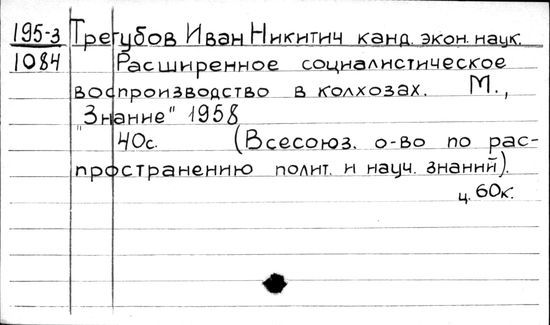 195-3 Трегубов Иван Никитич канд. экон. наук.
1084 Расширенное социалистическое
воспроизводство в колхозах. М.,
"Знание" 1958
40с. (Всесоюз. о-во по рас-
пространению полит. и науч. знаний).
ц. 60к.